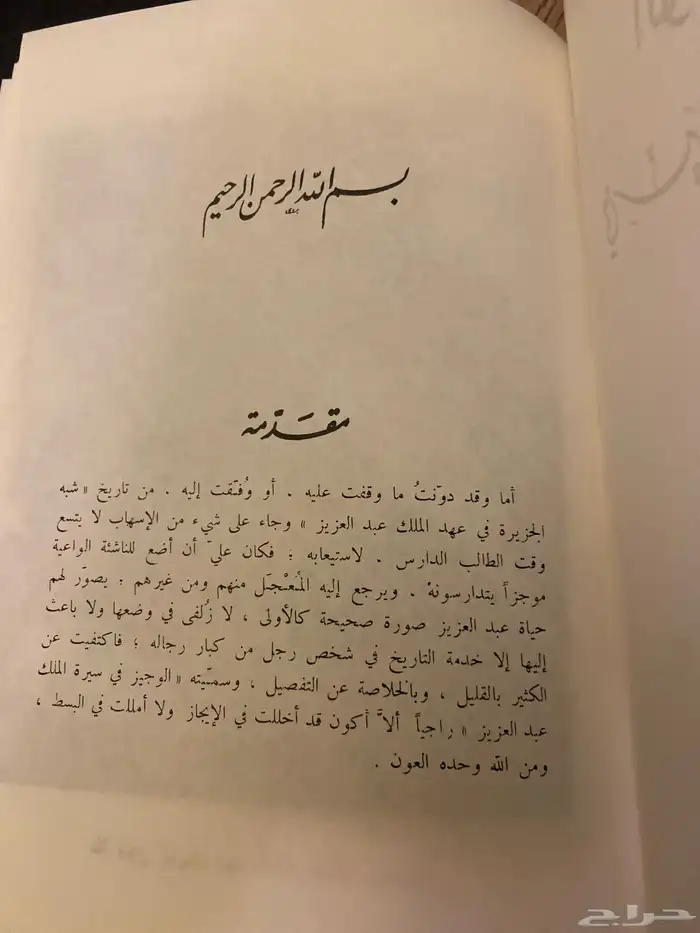 بسم الله الرحمن الرحيم
مقدّمة
أما وقد دوّنتُ ما وقفت عليه . أو وُفّقت إليه . من تاريخ « شبه
الجزيرة في عهد الملك عبد العزيز » وجاء على شيء من الإسهاب لا يتسع
وقت الطالب الدارس . لاستيعابه ؛ فكان عليّ أن أضع للناشئة الواعية
موجزاً يتدارسونهُ . ويرجع إليه المُتعْجِل منهم ومن غيرهم ؛ يصوّر لهم
حياة عبد العزيز صورة صحيحة كالأولى ، لا زُلفى في وضعها ولا باعث
إليها إلا خدمة التاريخ في شخص رجل من كبار رجاله ؛ فاكتفيت عن
الكثير بالقليل ، وبالخلاصة عن التفصيل ، وسمّيته « الوجيز في سيرة الملك
عبد العزيز » راجياً ألاّ أكون قد أخللت في الإيجاز ولا أمللت في البسط ،
ومن الله وحده العون .
حراج